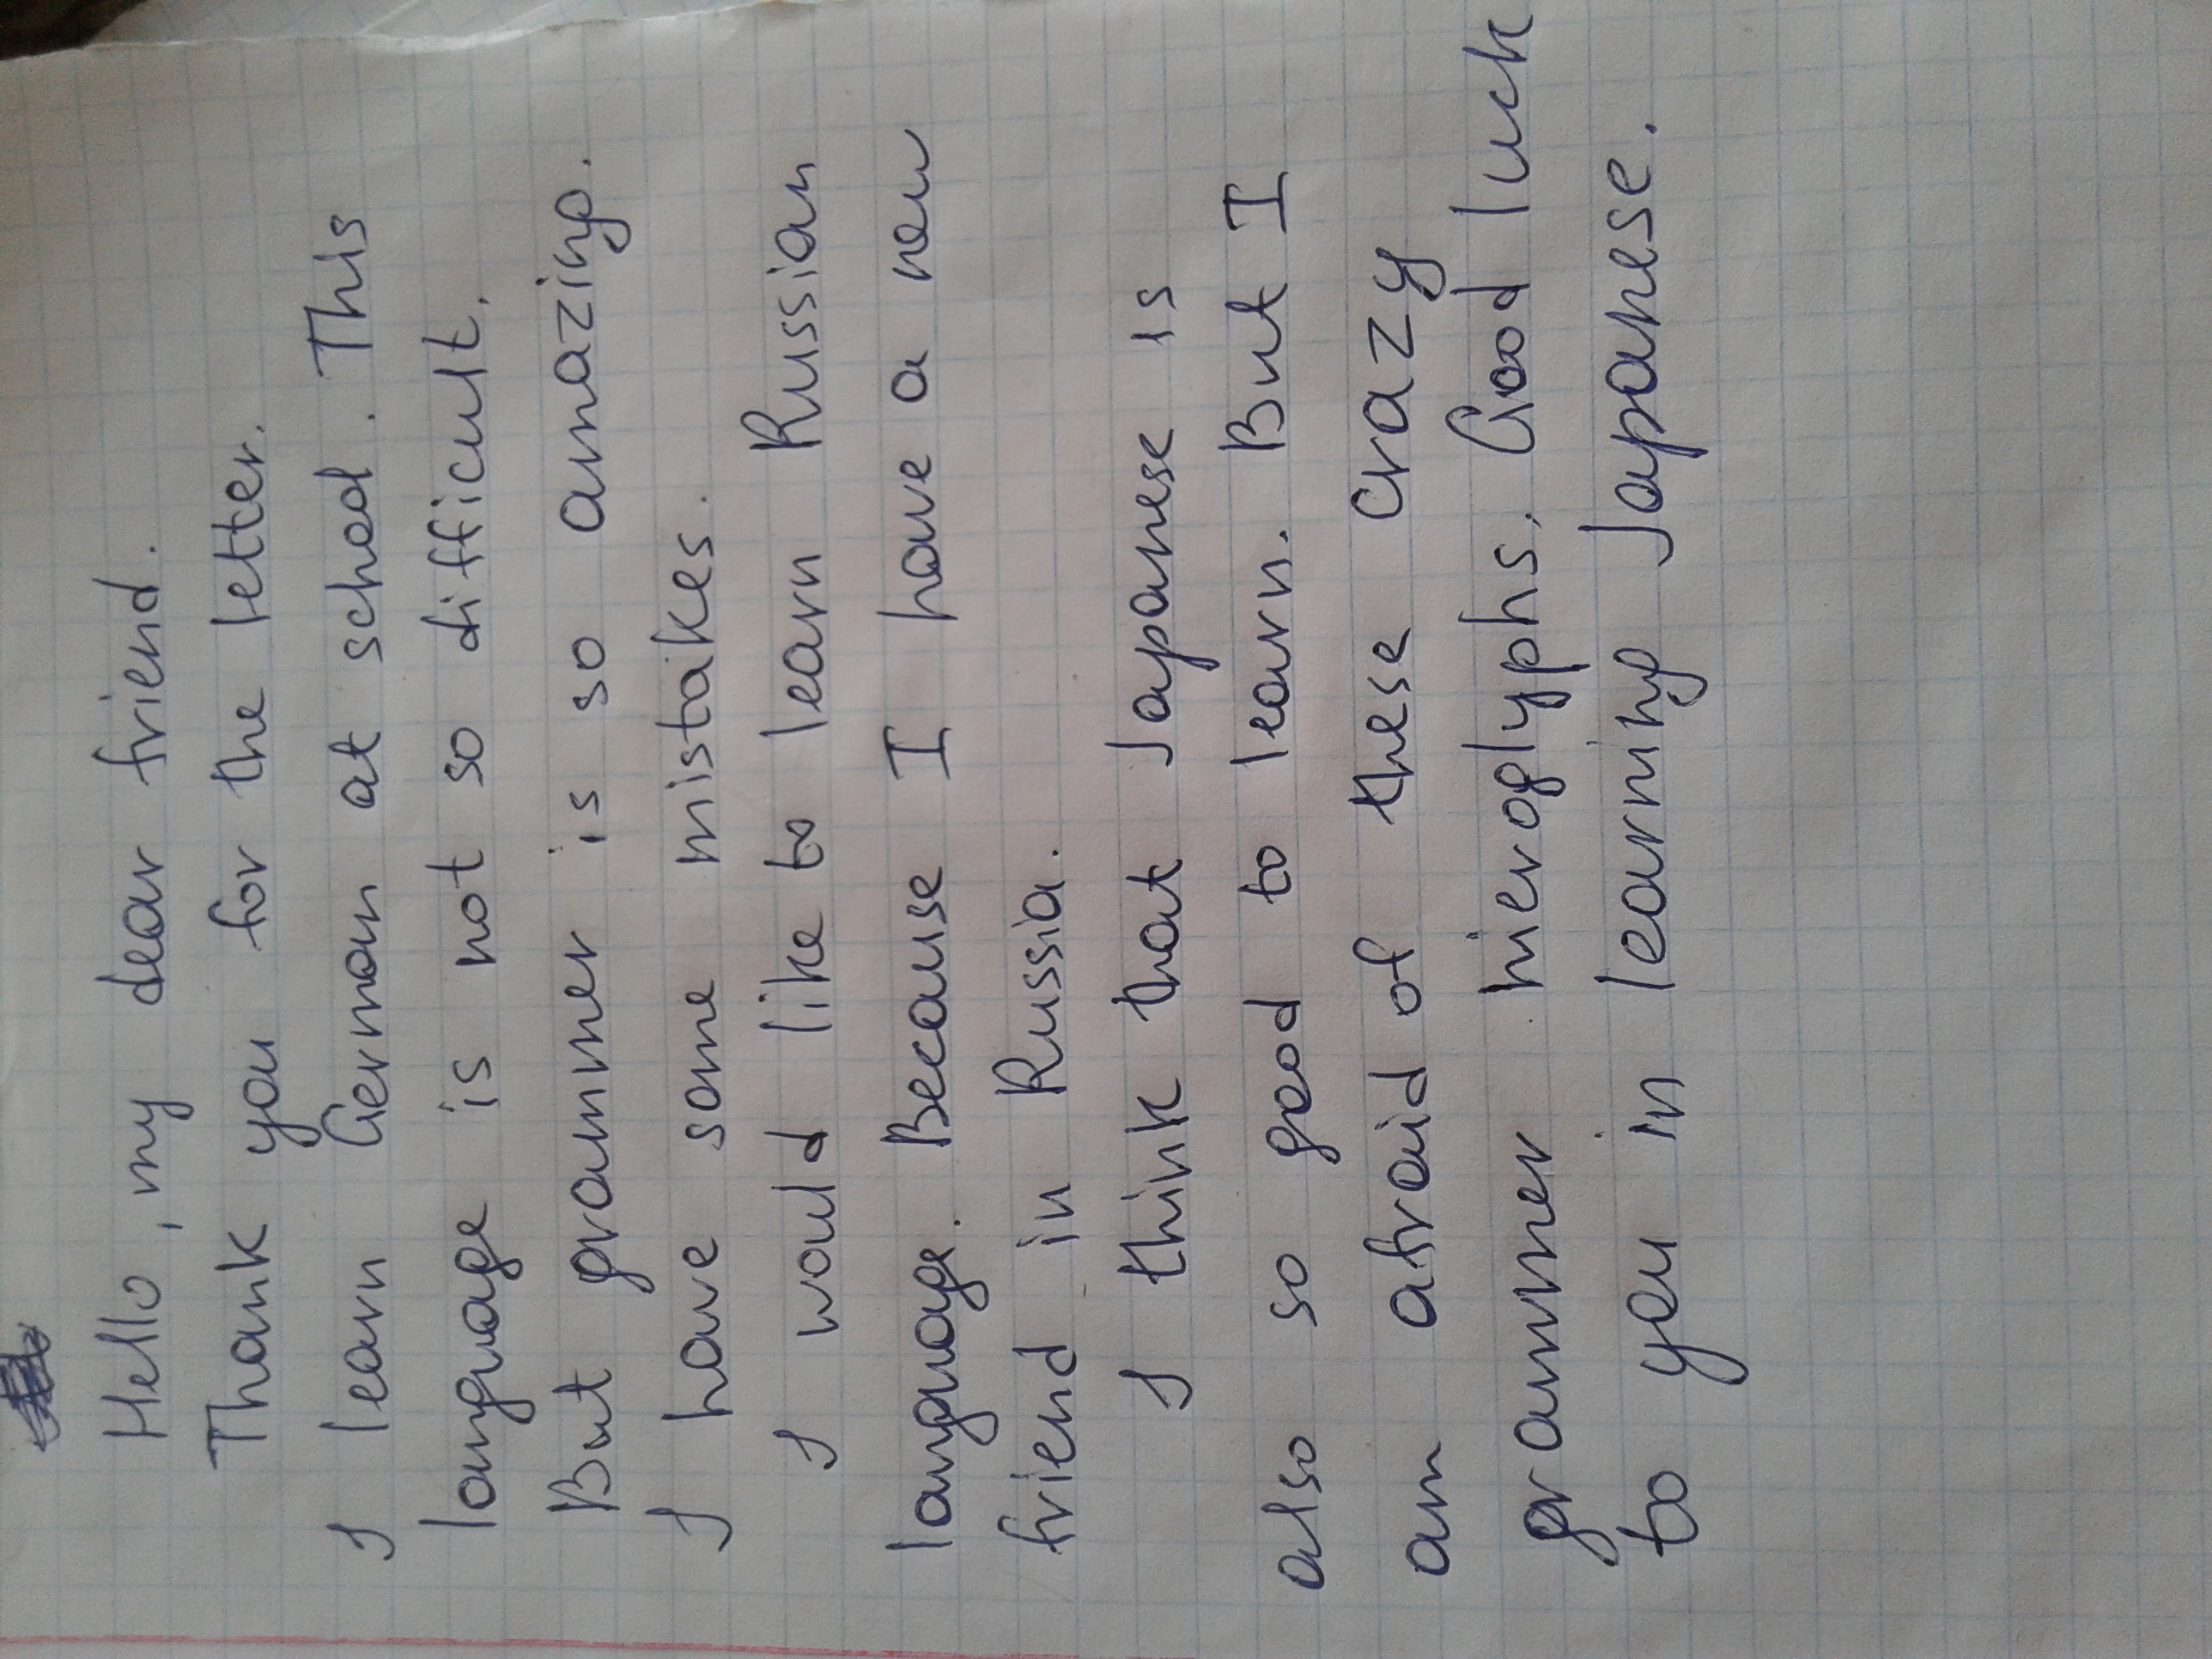 Hello, my dear friend.
Thank you for the letter.
I learn German at school. This
language is not so difficult.
But grammer is so amazing.
I have some mistakes.
I would like to learn Russian
language. Because I have a new
friend in Russia.
I think that Japanese is
also so good to learn. But I
am afraid of these crazy
grammer hieroglyphs. Good luck
to you in learning Japanese.